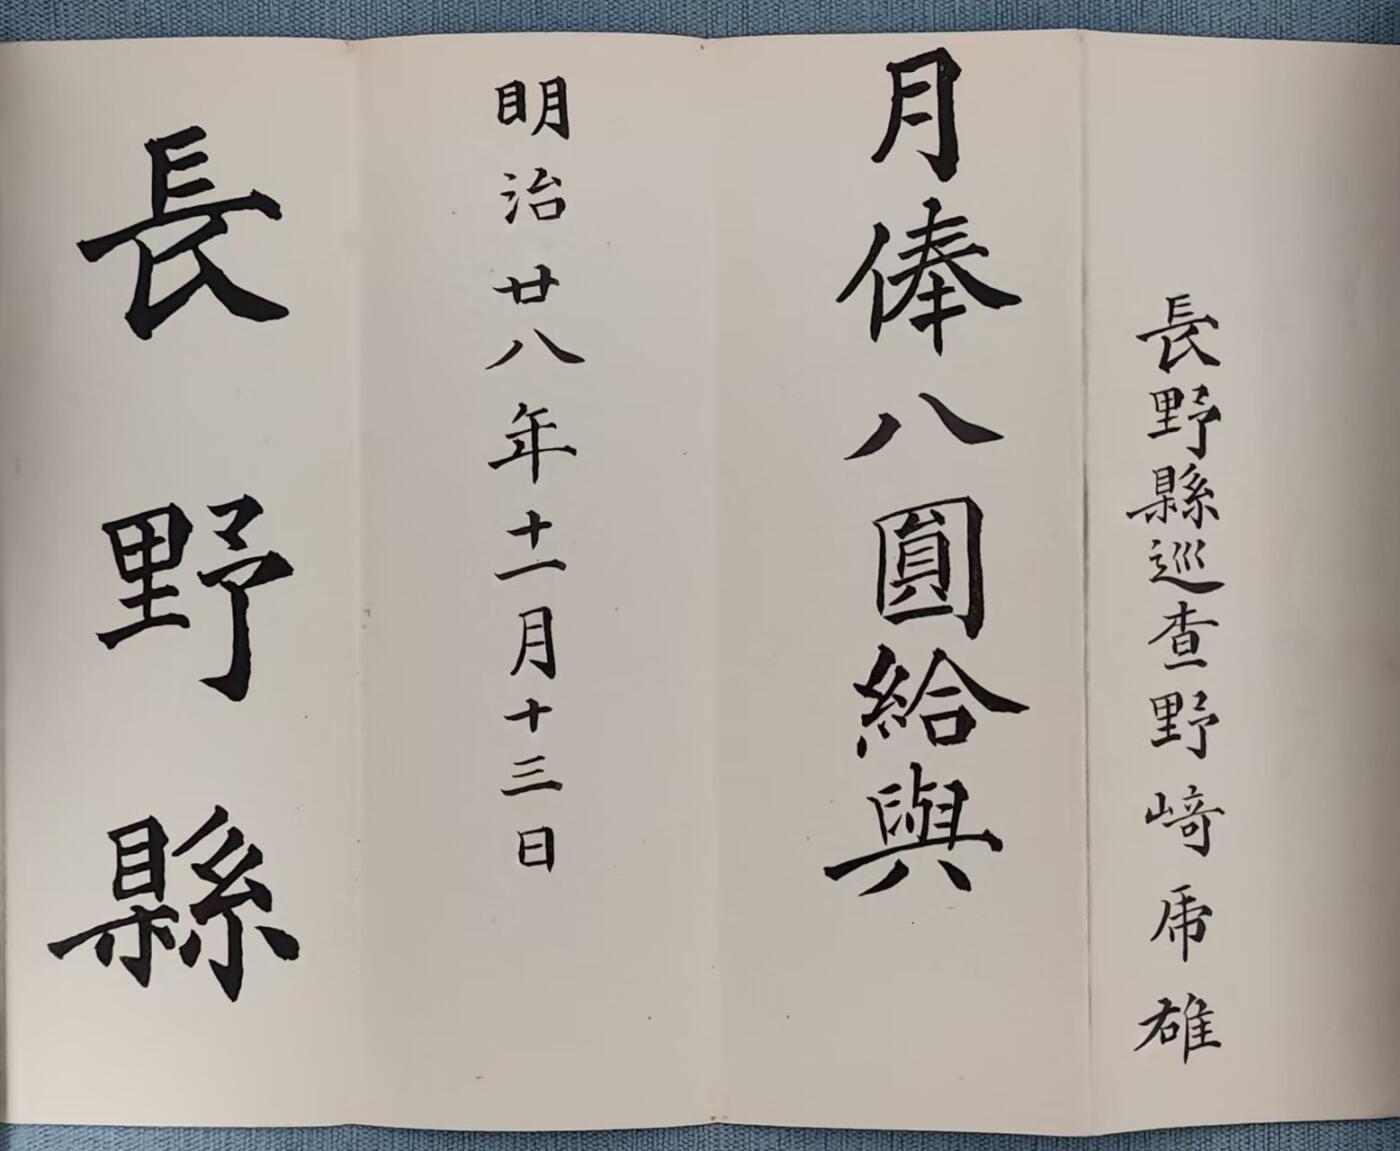 長野縣巡査野﨑乕雄
月俸八圓給與
明治廿八年十一月十三日
長野縣